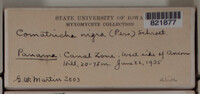 STATE UNIVERSITY OF IOWA
MYXOMYCETE COLLECTION
821877
Comatricha nigra (Pers) Schroet.
Panama: Canal Zone, west side of Ancon
Hill, 25-75m. June 22, 1935
G.W. Martin 2503